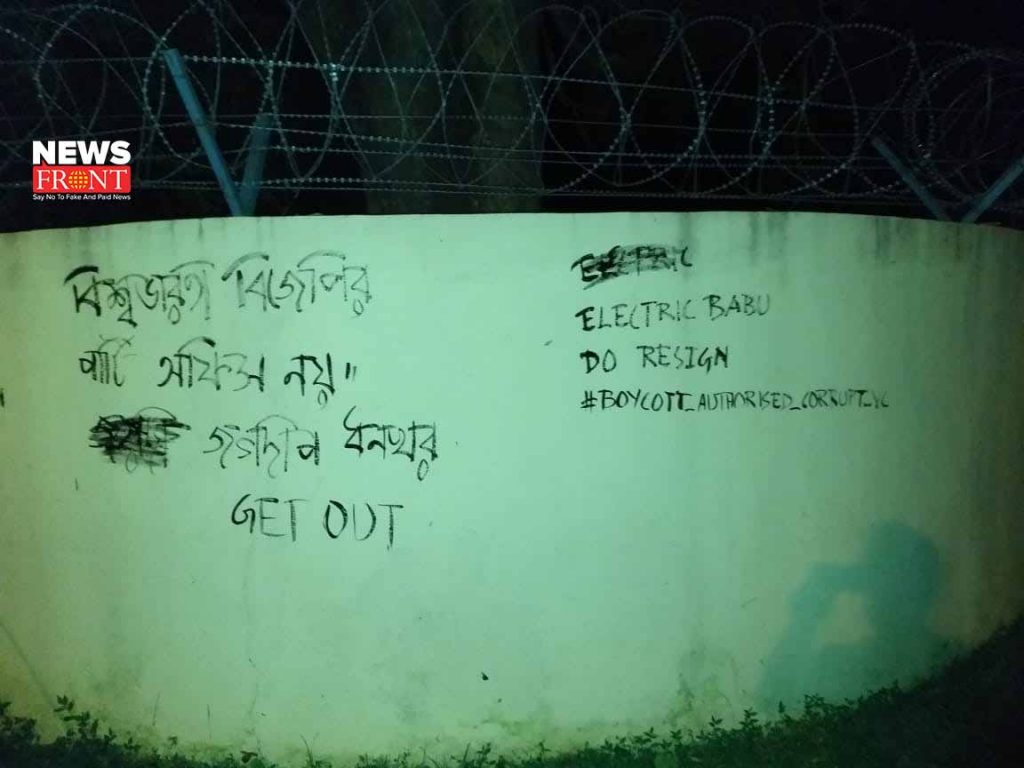 NEWS
FRONT
Say No To Fake And Paid News
বিশ্বভারতী বিজেপির
পার্টি অফিস নয়"
জগদীপ ধনখর
GET OUT
ELECTRIC
ELECTRIC BABU
DO RESIGN
#BOYCOTT_AUTHORISED_CORRUPT_VC